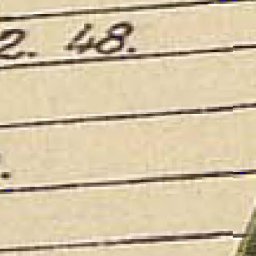 2. 48.
.